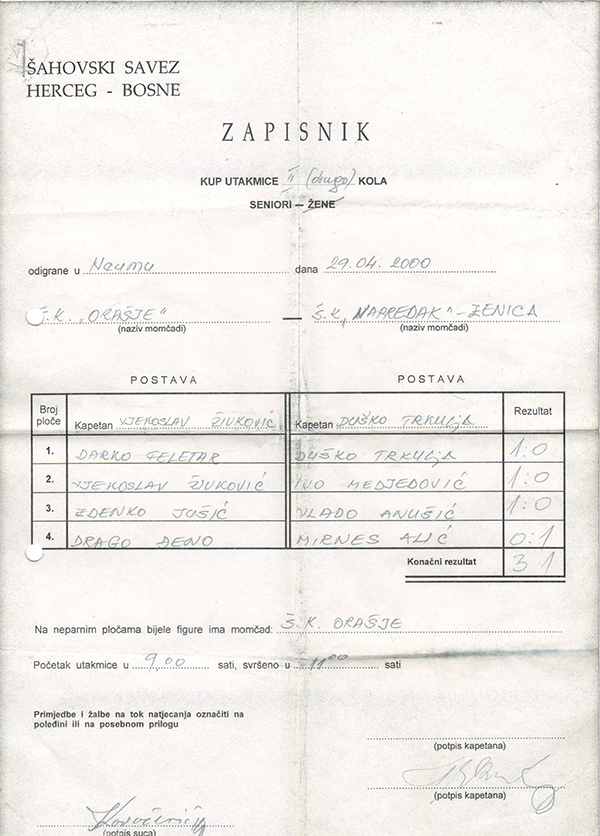 ŠAHOVSKI SAVEZ
HERCEG - BOSNE
ZAPISNIK
KUP UTAKMICE II (drugo) KOLA
SENIORI – ŽENE
odigrane u Neumu dana 29.04.2000
Š.K. „ORAŠJE" — Š.K. „NAPREDAK" - ZENICA
(naziv momčadi) (naziv momčadi)
POSTAVA POSTAVA
Broj ploče Kapetan VJEKOSLAV ŽIVKOVIĆ Kapetan DUŠKO TRKULJA Rezultat
1. DARKO FELETAR DUŠKO TRKULJA 1:0
2. VJEKOSLAV ŽIVKOVIĆ IVO MEDJEDOVIĆ 1:0
3. ZDENKO JOŠIĆ VLADO ANUŠIĆ 1:0
4. DRAGO ĐENO MIRNES ALIĆ 0:1
Konačni rezultat 3 1
Na neparnim pločama bijele figure ima momčad: Š.K. ORAŠJE
Početak utakmice u 9,00 sati, svršeno u 11 00 sati
Primjedbe i žalbe na tok natjecanja označiti na
poleđini ili na posebnom prilogu
(potpis kapetana)
(potpis kapetana)
(potpis suca)